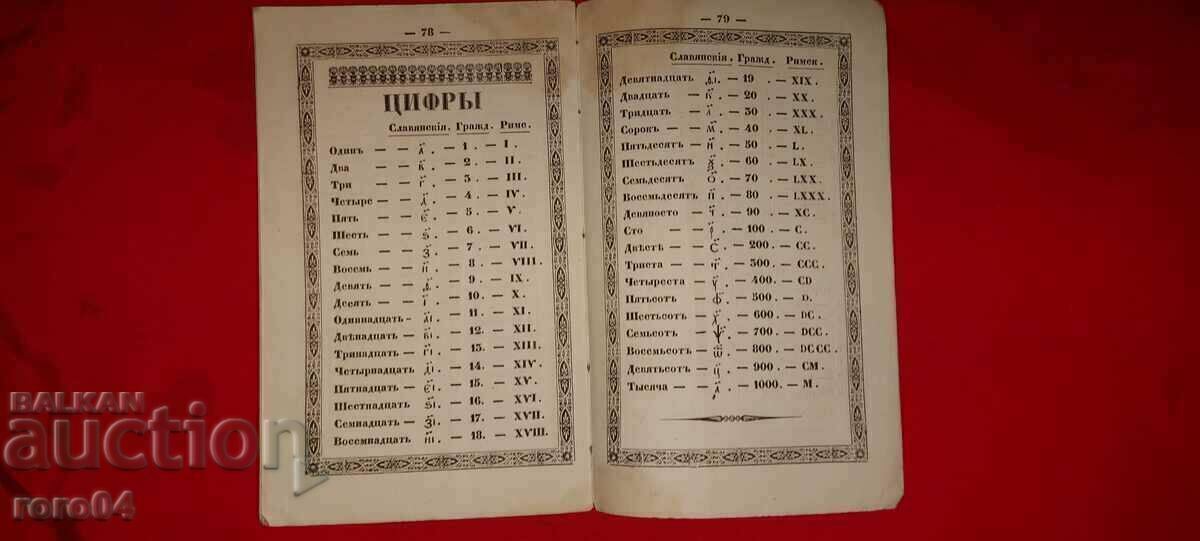 — 78 —
ЦИФРЫ
Славянскія. Гражд. Римс.
Одинъ — — а҃. — 1 . — I .
Два — — в҃. — 2 . — II .
Три — — г҃. — 3 . — III.
Четыре — — д҃. — 4 . — IV.
Пять — — є҃. — 5 . — V.
Шесть — — ѕ҃. — 6 . — VI.
Семь — — з҃. — 7 . — VII.
Восемь — — и҃. — 8 . — VIII.
Девять — — ѳ҃. — 9 . — IX.
Десять — — і҃. — 10. — X.
Одиннадцать — аі҃. — 11. — XI.
Двѣнадцать — ві҃. — 12. — XII.
Тринадцать — гі҃. — 13. — XIII.
Четырнадцать — ді҃. — 14. — XIV.
Пятнадцать — єі҃. — 15. — XV.
Шестнадцать — ѕі҃. — 16. — XVI.
Семнадцать — зі҃. — 17. — XVII.
Восемнадцать — иі҃. — 18. — XVIII.
— 79 —
Славянскія. Гражд. Римск.
Девятнадцать — 19 . — XIX.
Двадцать — к҃. — 20 . — XX.
Тридцать — л҃. — 30 . — XXX.
Сорокъ — — м҃. — 40 . — XL.
Пятьдесят — н҃. — 50 . — L.
Шестьдесят — 60 . — LX.
Семьдесят — о҃. — 70 . — LXX.
Восемьдесят — п҃. — 80 . — LXXX.
Девяносто — ч҃. — 90 . — XC.
Сто — — р҃. — 100 . — C.
Двѣстѣ — — с҃. — 200 . — CC.
Триста — — т҃. — 300 . — CCC.
Четыреста — у҃. — 400. — CD
Пятьсот — — ф҃. — 500 . — D.
Шестьсот — х҃. — 600 . — DC.
Семьсотъ — ѱ҃. — 700 . — DCC.
Восемьсотъ — ѿ҃. — 800 . — DCCC.
Девятьсот — ц҃. — 900 . — CM.
Тысяча — — 1000. — M.
BALKAN
auction
roro04